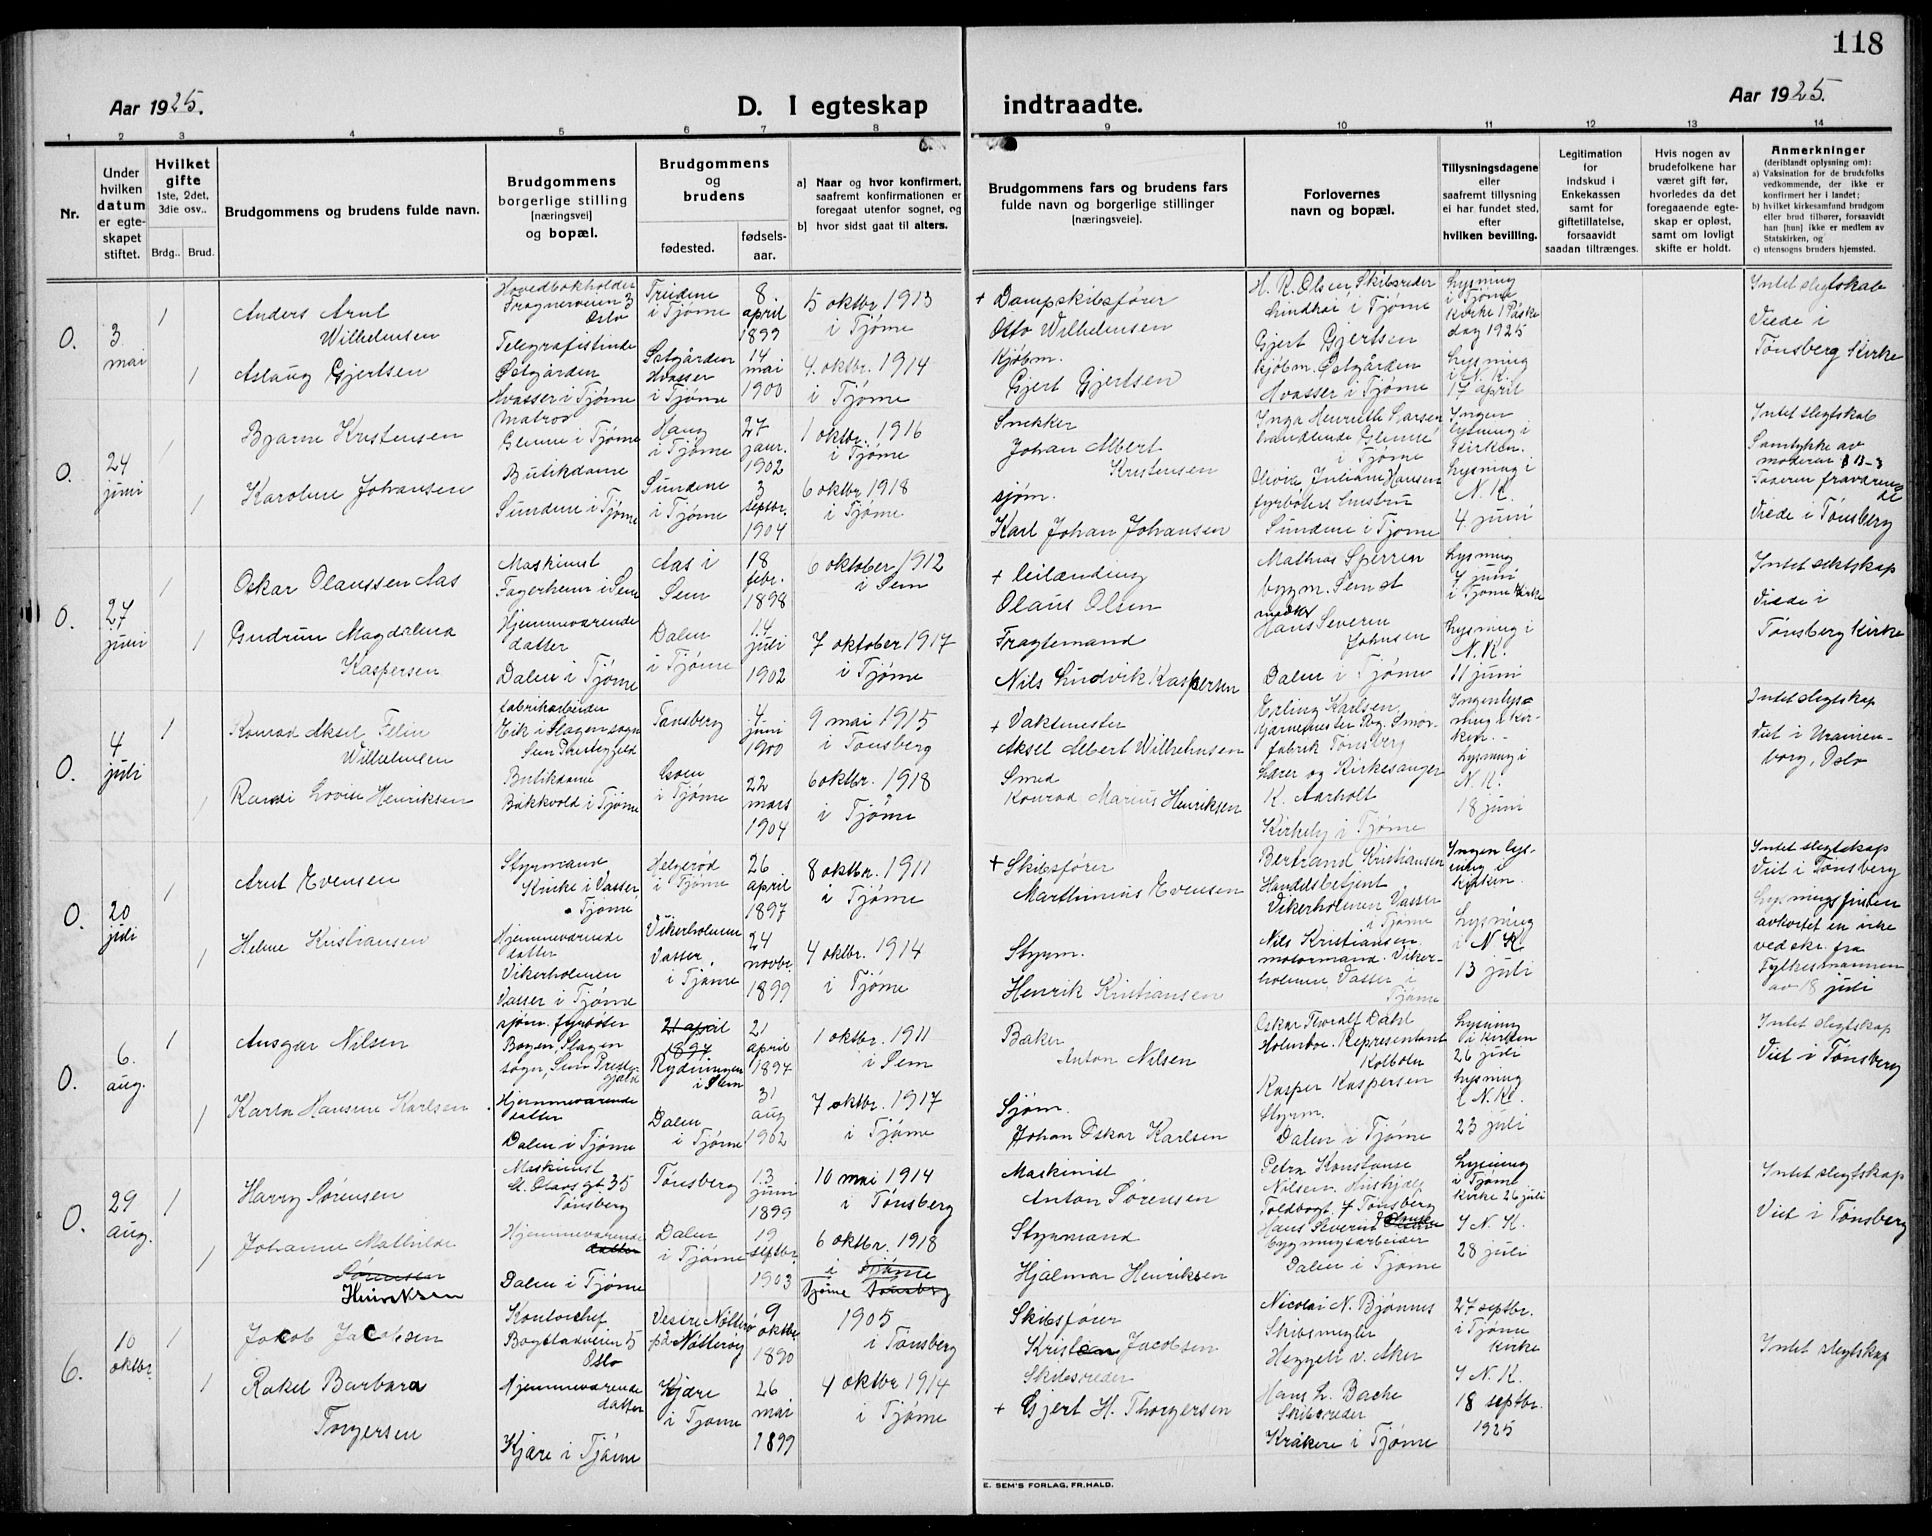 118
Aar 1925.
D. I egteskap indtraadte.
Aar 1925.
1 2 3 4 5 6 7 8 9 10 11 12 13 14
Nr.
Under hvilken datum er egteskapet stiftet.
Hvilket gifte 1ste, 2det, 3die osv..
Brdg.. Brud.
Brudgommens og brudens fulde navn.
Brudgommens borgerlige stilling [næringsvei] og bopæl.
Brudgommens og brudens
fødested.
fødselsaar.
a) Naar og hvor konfirmert, saafremt konfirmationen er foregaat utenfor sognet, og
b) hvor sidst gaat til alters.
Brudgommens fars og brudens fars fulde navn og borgerlige stillinger [næringsveie].
Forlovernes navn og bopæl.
Tillysningsdagene eller saafremt tillysning ei har fundet sted, efter hvilken bevilling.
Legitimation for indskud i Enkekassen samt for giftetillatelse, forsaavidt saadan tiltrænges.
Hvis nogen av brudefolkene har været gift før, hvorledes da det foregaaende egteskap er opløst, samt om lovligt skifte er holdt.
Anmerkninger
(deriblandt oplysning om):
a) Vaksination for de brudfolks vedkommende, der ikke er konfirmert her i landet;
b) hvilket kirkesamfund brudgom eller brud tilhører, forsaavidt han [hun] ikke er medlem av Statskirken, og
c) utensogns bruders hjemsted.
0. 3 mai
1
Anders Arnt Wilhelmsen
Hovedbokholder Frognerveien 3 Oslo
i Tjøme
8 april 1899
5 oktbr 1913 i Tjøme
+ Dampskibsfører Otto Wilhelmsen
H. R. Olsen Skibsreder Lindhøi i Tjøme
Lysning i Tjøme kirke 1 Påske dag 1925
Intet slegtskab
Viede i Tønsberg Kirke
1
Aslaug Gjertsen
Telegrafistinde Østgården Hvasser i Tjøme
Østgården Hvasser i Tjøme
14 mai 1900
4. oktbr. 1914 i Tjøme
Kjøbm. Gjert Gjertsen
Gjert Gjertsen kjøbm. Østgården Hvasser i Tjøme
Lysning i N. K. 17 april
0. 24 juni
1
Bjarne Kristensen
Matros Glenne i Tjøme
Haug i Tjøme
27 janr. 1902
1 oktbr. 1916 i Tjøme
Snekker Johan Albert Kristensen
Inga Henriette Larsen handlende Glenne i Tjøme
Ingen lysning i Kirken.
Intet slegtskab
Samtykke av moderen
Faderen fraværende
Viede i Tønsberg
1
Karoline Johansen
Butikdame Sundene i Tjøme
Sundene i Tjøme
3 septbr. 1904
6 oktbr 1918 i Tjøme
sjøm. Karl Johan Johansen
Olivia Juliane Hansen fyrbøters hustru Sundene i Tjøme
Lysning i N. K. 4 juni
0. 27 juni
1
Oskar Olaussen Aas
Maskinist Fagerheim i Sem
Aas i Sem
18 febr. 1898
6 oktober 1912 i Sem
+ leilænding Olaus Olsen
Mathias Sperren bygm. Sem st
Lysning 7 juni i Tjøme Kirke
Intet slektskap
Viede i Tønsberg Kirke
1
Gudrun Magdalena Kaspersen
Hjemmeværende datter Dalen i Tjøme
Dalen i Tjøme
14 juli 1902
7 oktober 1917 i Tjøme
Fragtemand Nils Ludvik Kaspersen
Hans Severin Johnsen Dalen i Tjøme
Lysning i N. K. 11 juni
0. 4 juli
1
Konrad Aksel Felix Wilhelmsen
fabrikarbeider Eik i Slagen sogn Sem Prestegjeld
Tønsberg
4 juni 1900
9 mai 1915 i Tønsberg
+ Vaktmester Aksel Albert Wilhelmsen
Erling Karlsen Garnmester Tbg. Smørfabrik Tønsberg
Ingen lysning i kirken.
Intet slegtskap
Viet i Uranienborg, Oslo
1
Randi Lovise Henriksen
Butikdame Bakkvold i Tjøme
i Tjøme
22 mars 1904
6 oktbr. 1918 i Tjøme
Smed Konrad Marius Henriksen
Lærer og Kirkesanger K. Aarholt Kirkely i Tjøme
Lysning i N. K. 18 juni
0. 20 juli
1
Arnt Evensen
Styrmand Kirike i Vasser Tjøme
Helgerød i Tjøme
26 april 1897
8 oktbr. 1911 i Tjøme
+ Skibsfører Marthinius Evensen
Bertrand Kristiansen Handelsbetjent Vikerholmen Vasser i Tjøme
Ingen lysning i kirken.
Intet slegtskap
Viet i Tønsberg
Lysningsfristen avkortet en uke ved skr. fra Fylkesmannen av 18 juli
1
Helene Kristiansen
Hjemmeværende datter Vikerholmen Vasser i Tjøme
Vikerholmen Vasser i Tjøme
24 novbr. 1899
4 oktbr. 1914 i Tjøme
Styrm. Henrik Kristiansen
Nils Kristiansen motormand. Vikerholmen Vasser i Tjøme
Lysning i N K. 13 juli
0. 6. aug.
1
Ansgar Nilsen
sjøm. fyrbøter Bogen, Slagen sogn, Sem Prestegjeld
21 april 1897 Rydningen i Sem
21 april 1897
1 oktbr. 1911 i Sem
Baker Anton Nilsen
Oskar Thoralf Dahl Holmboe. Representant Kolbotn
Lysning i Kirken 26 juli
Intet slegtskap
Viet i Tønsberg
1
Karla Hansine Karlsen
Hjemmeværende datter Dalen i Tjøme
Dalen i Tjøme
31 aug 1902
7 oktbr. 1917 i Tjøme
Sjøm. Johan Oskar Karlsen
Kasper Kaspersen Styrm. Dalen i Tjøme
Lysning i N. K. 23 juli
0. 29 aug.
1
Harry Sørensen
Maskinist St. Olavs gt. 35 Tønsberg
Tønsberg
13 juni 1899
10 mai 1914 i Tønsberg
Maskinist Anton Sørensen
Petra Konstanse Nilsen. Hushjelp Toldbogt. 7 Tønsberg
Lysning i Tjøme Kirke 26 juli
Intet slegtskap
Viet i Tønsberg
1
Johanne Mathilde Sørensen Henriksen
Hjemmeværende datter Dalen i Tjøme
Dalen i Tjøme
19 septbr. 1903
6 oktbr. 1918 i Tjøme Tjøme Tønsberg
Styrmand Hjalmar Henriksen
Hans Severin Johnsen bygningsarbeider Dalen i Tjøme
I N. K. 28 juli
6. 10 oktbr.
1
Jacob Jacobsen
Kontorchef Bogstadveien 5 Oslo
Vestre Nøtterø på Nøtterøy
9 oktbr 1890
1905 i Tønsberg
Skibsfører Kristian Jacobsen
Nicolai N. Bjønnes Skibsmegler Heggeli v. Aker
27 septbr. i Tjøme kirke
Intet slegtskap
1
Rakel Barbara Torgersen
Hjemmeværende datter Kjære i Tjøme
Kjære i Tjøme
26 mai 1899
4 oktbr 1914 i Tjøme
Skibsreder + Gjert H. Thorgersen
Hans L. Bache Skibsreder Kråkere i Tjøme
I N. K. 18 septbr. 1925
E. SEM'S FORLAG, FR.HALD.